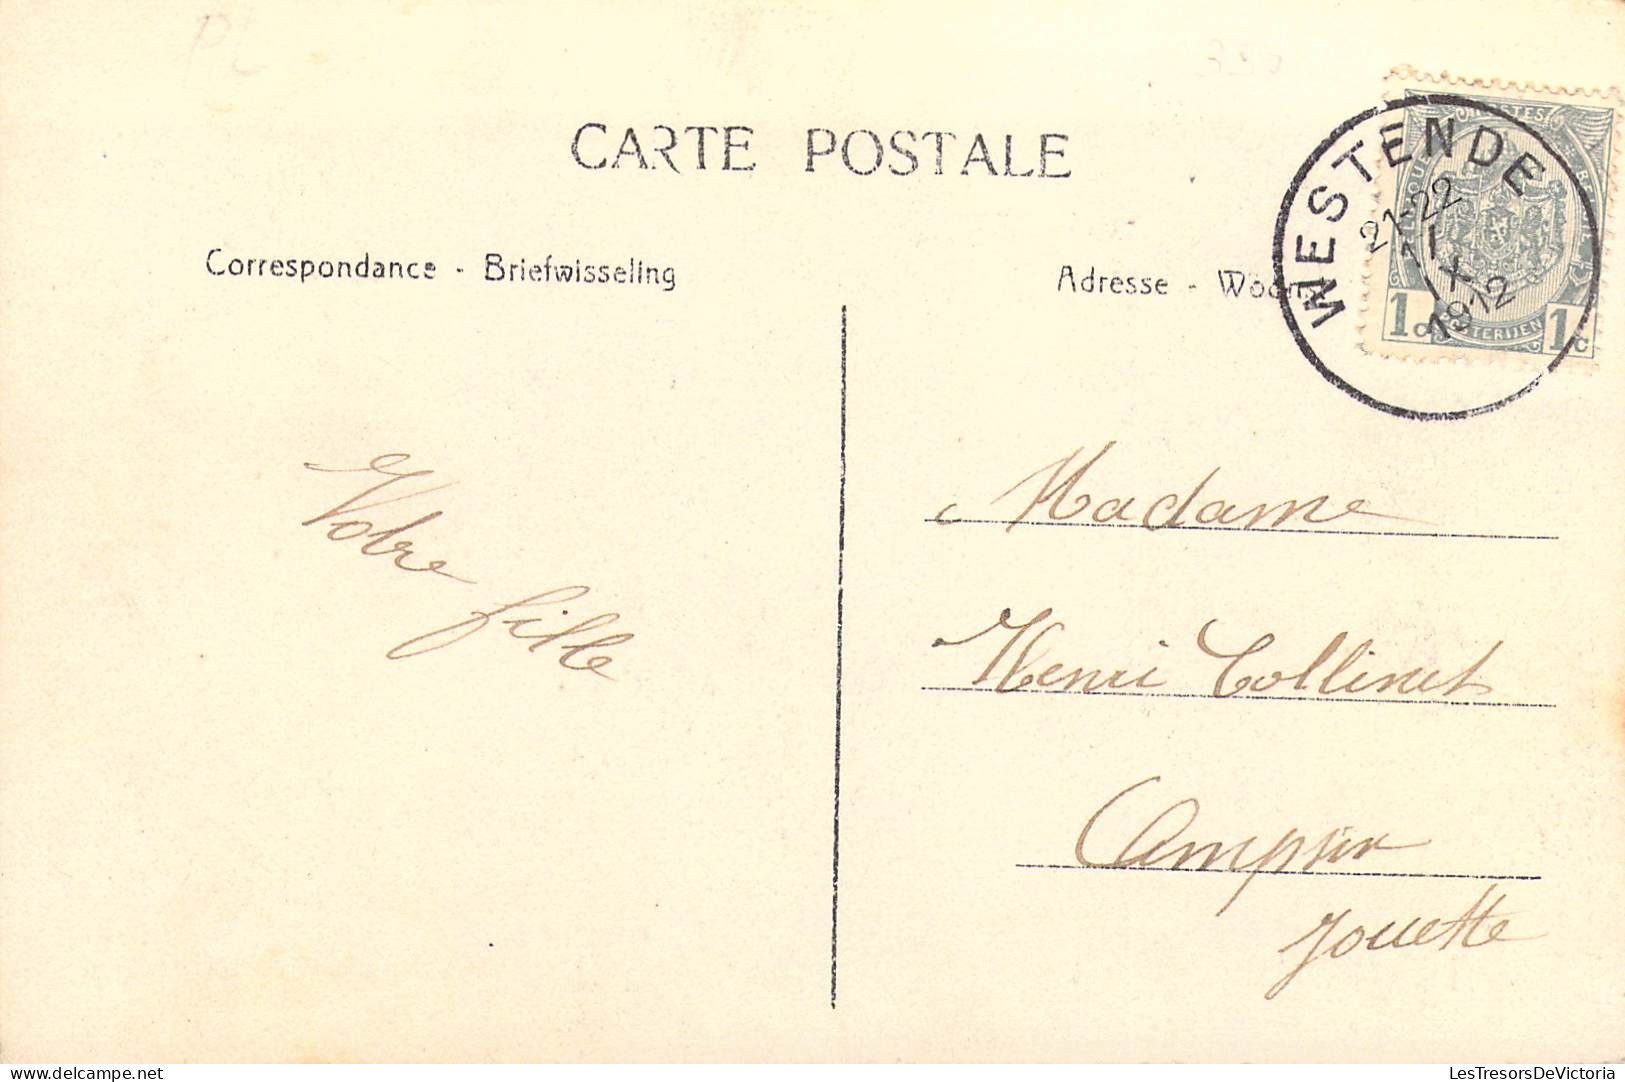 PL
CARTE POSTALE
Correspondance - Briefwisseling
Adresse -
WESTENDE
21-22
1912
1c
1c
Votre
fille
Madame
Henri Collinet
Jouette
LesTresorsDeVictoria
delcampe.net